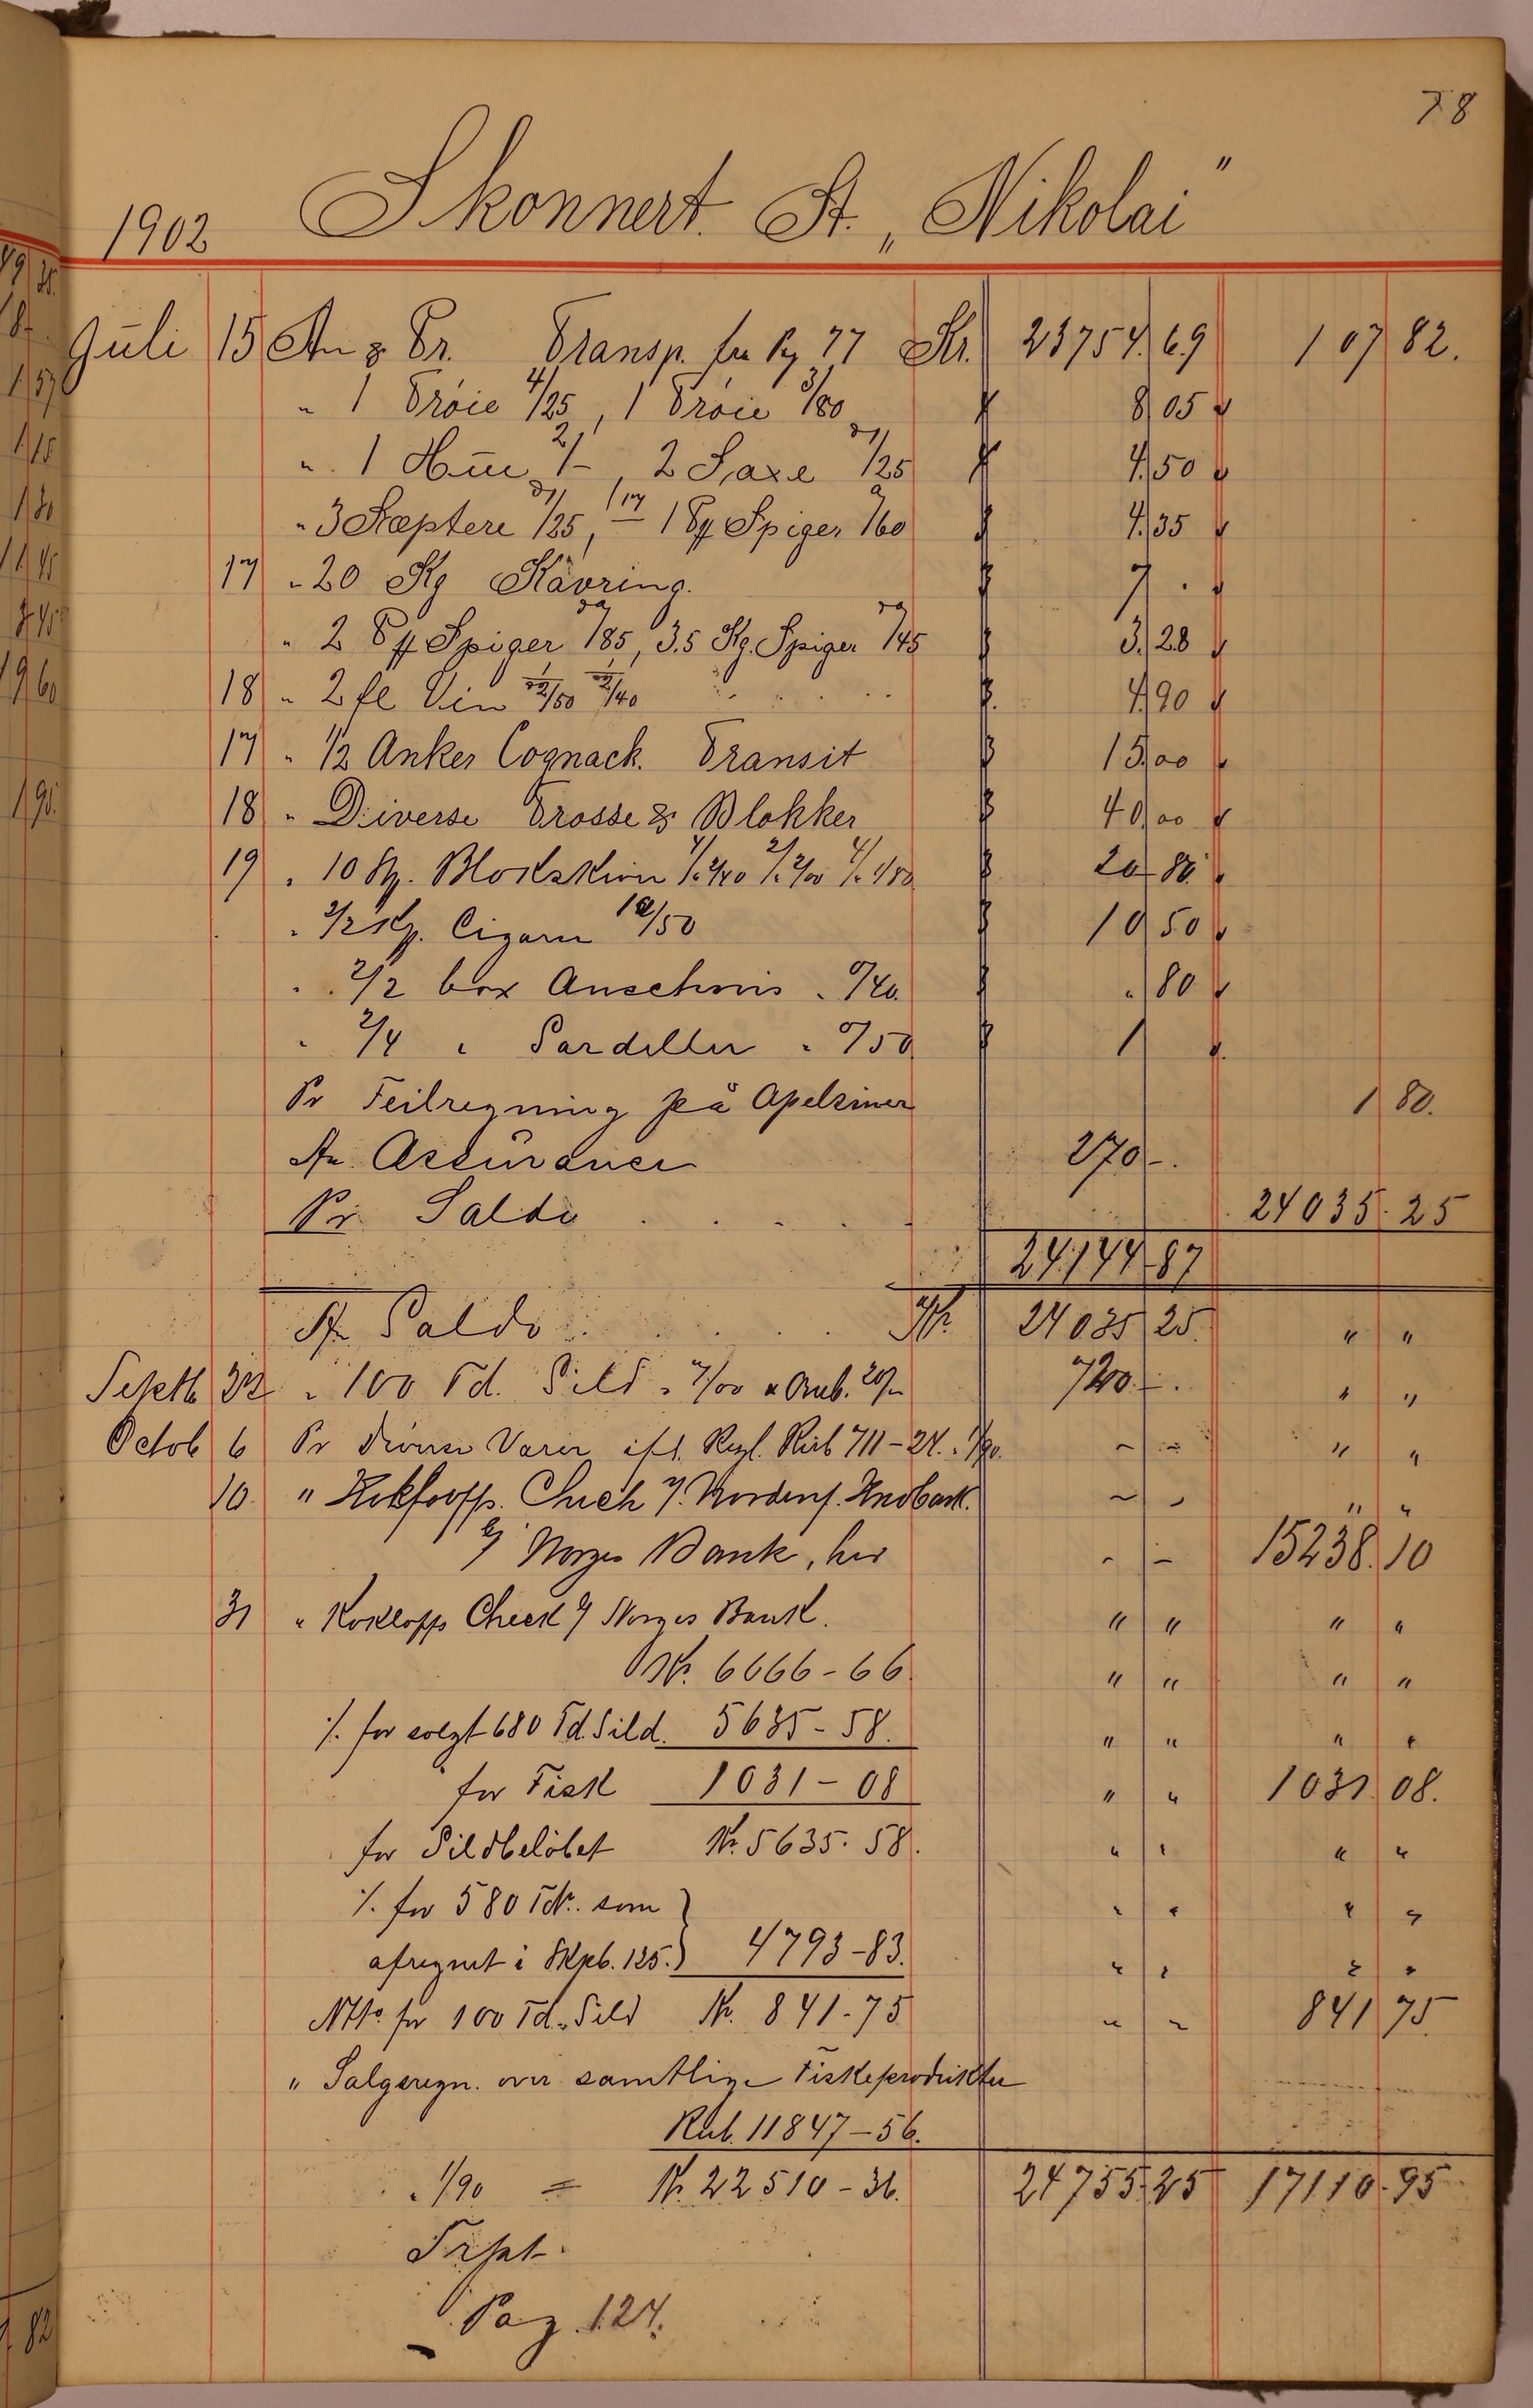 78
1902 Skonnert. St. „Nikolai"
Juli 15 An & Pr. Transp. fra Pg 77 Kr. 23754.69 107 82.
" 1 Trøie 4/25, 1 Trøie 3/80 8 05
" 1 Hue 2/-, 2 Saxe 1/25 4.50
" 3 1/25, 1 Pk Spiger /60 4.35
17 " 20 Kg Kavring. 7 .
" 2 Pk Spiger /85, 3.5 Kg. Spiger /45 3.28
18 " 2 fl Vin 2/50 2/40 4.90
17 " 1/2 Anker Cognack. Transit 15.00
18 " Diverse Trosse & Blokker 40.00
19 " 10 20 80
" 2/2 Cigarer 10/50 10 50
" 2/2 box Anschovis " 0/40 " 80
" 2/4 " Sardeller " 0/50 1
Pr Feilregning på Apelsiner 1 80.
An Assurance 270 -.
Pr. Saldo 24035.25
24144.87
An Saldo Kr. 24035 25. " "
Septb 22 " 100 Td. Sild " 7/00 720.-. " "
Octob 6 Pr diverse Varer ifl. Regl. Rub 711-24. " 1/90. " "
10 " Check " "
Norges Bank, her 15238.10
31 " Check Norges Bank. " " " "
Kr. 6666-66 " " " "
./. for solgt 680 Td. Sild. 5635-58. " " " "
for Fisk 1031-08 " " 1031 08.
for Sildbeløbet Kr. 5635.58. " " " "
./. for 580 Tdr. som " " " "
afregnet i Skpb. 125. 4793-83. " " " "
Ntto for 100 Td. Sild Kr. 841-75 " " 841 75.
" Salgsregn. over samtlige Fiskeprodukter
Rub. 11847-56.
" 1/90 = Kr. 22510-36. 24755.25 17110.95
Trspt.
Pag. 124.